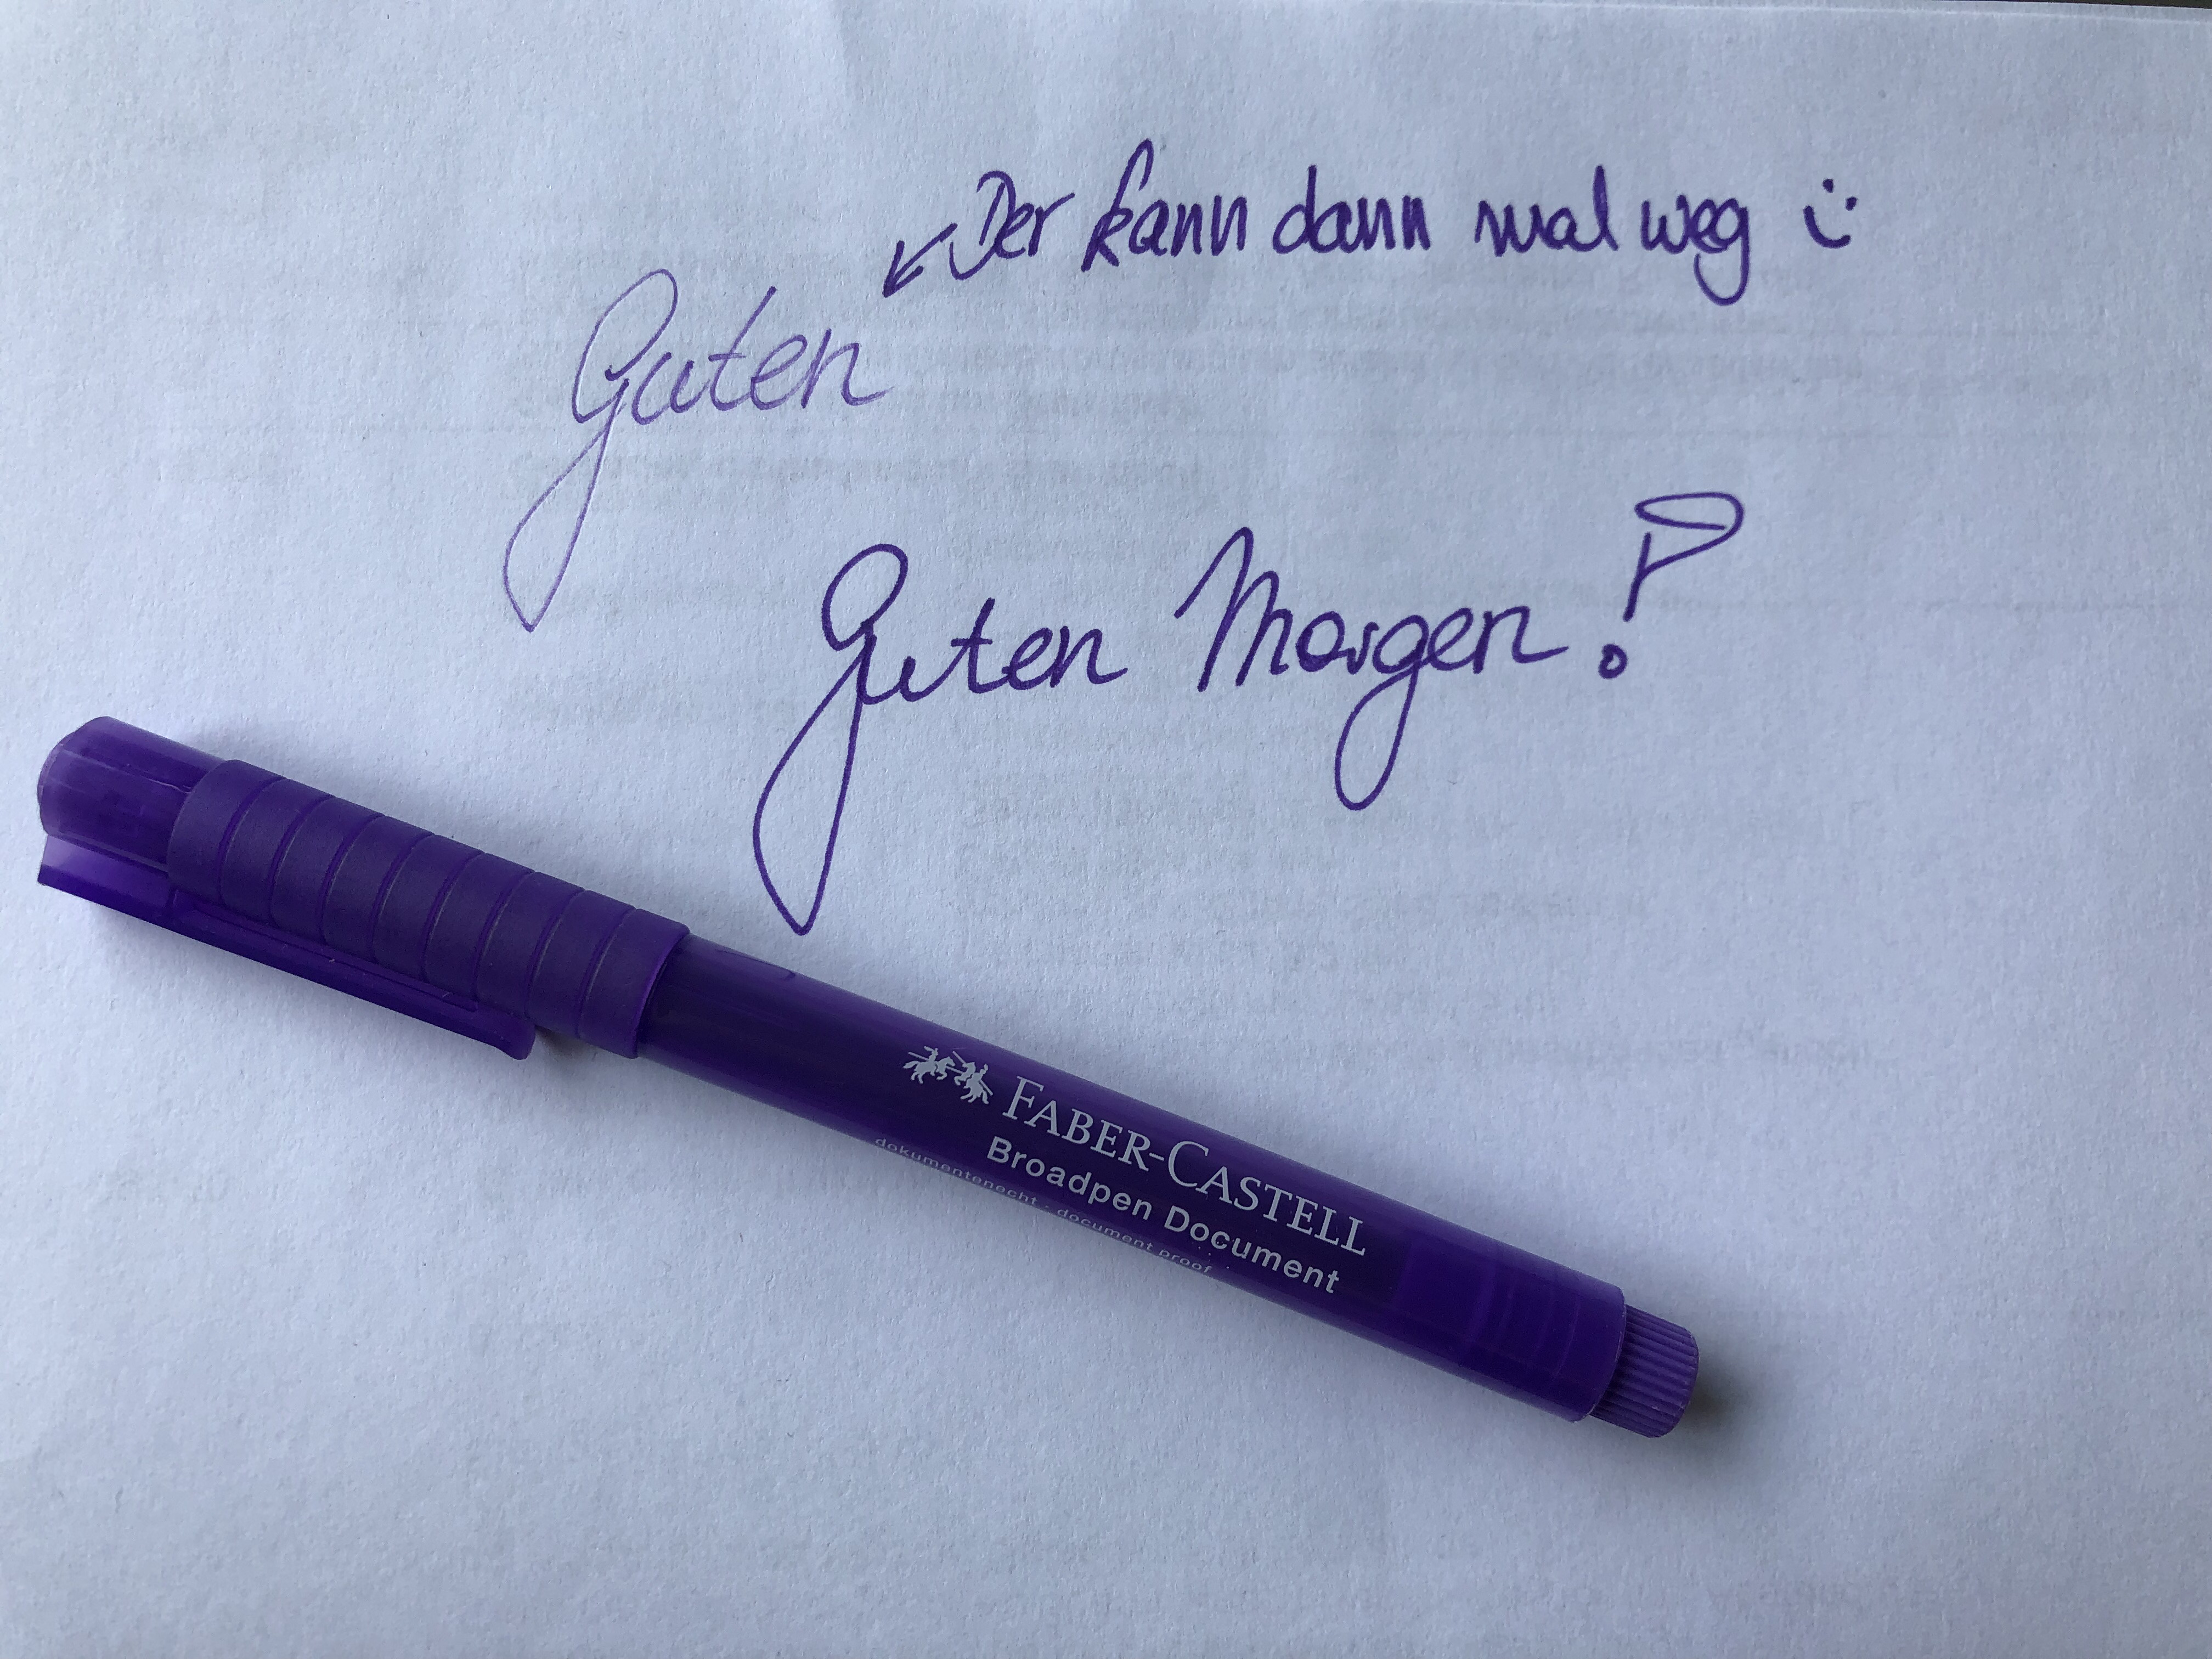 Der kann dann mal weg :)
Guten
Guten Morgen!
FABER-CASTELL
Broadpen Document
dokumentenecht · document proof